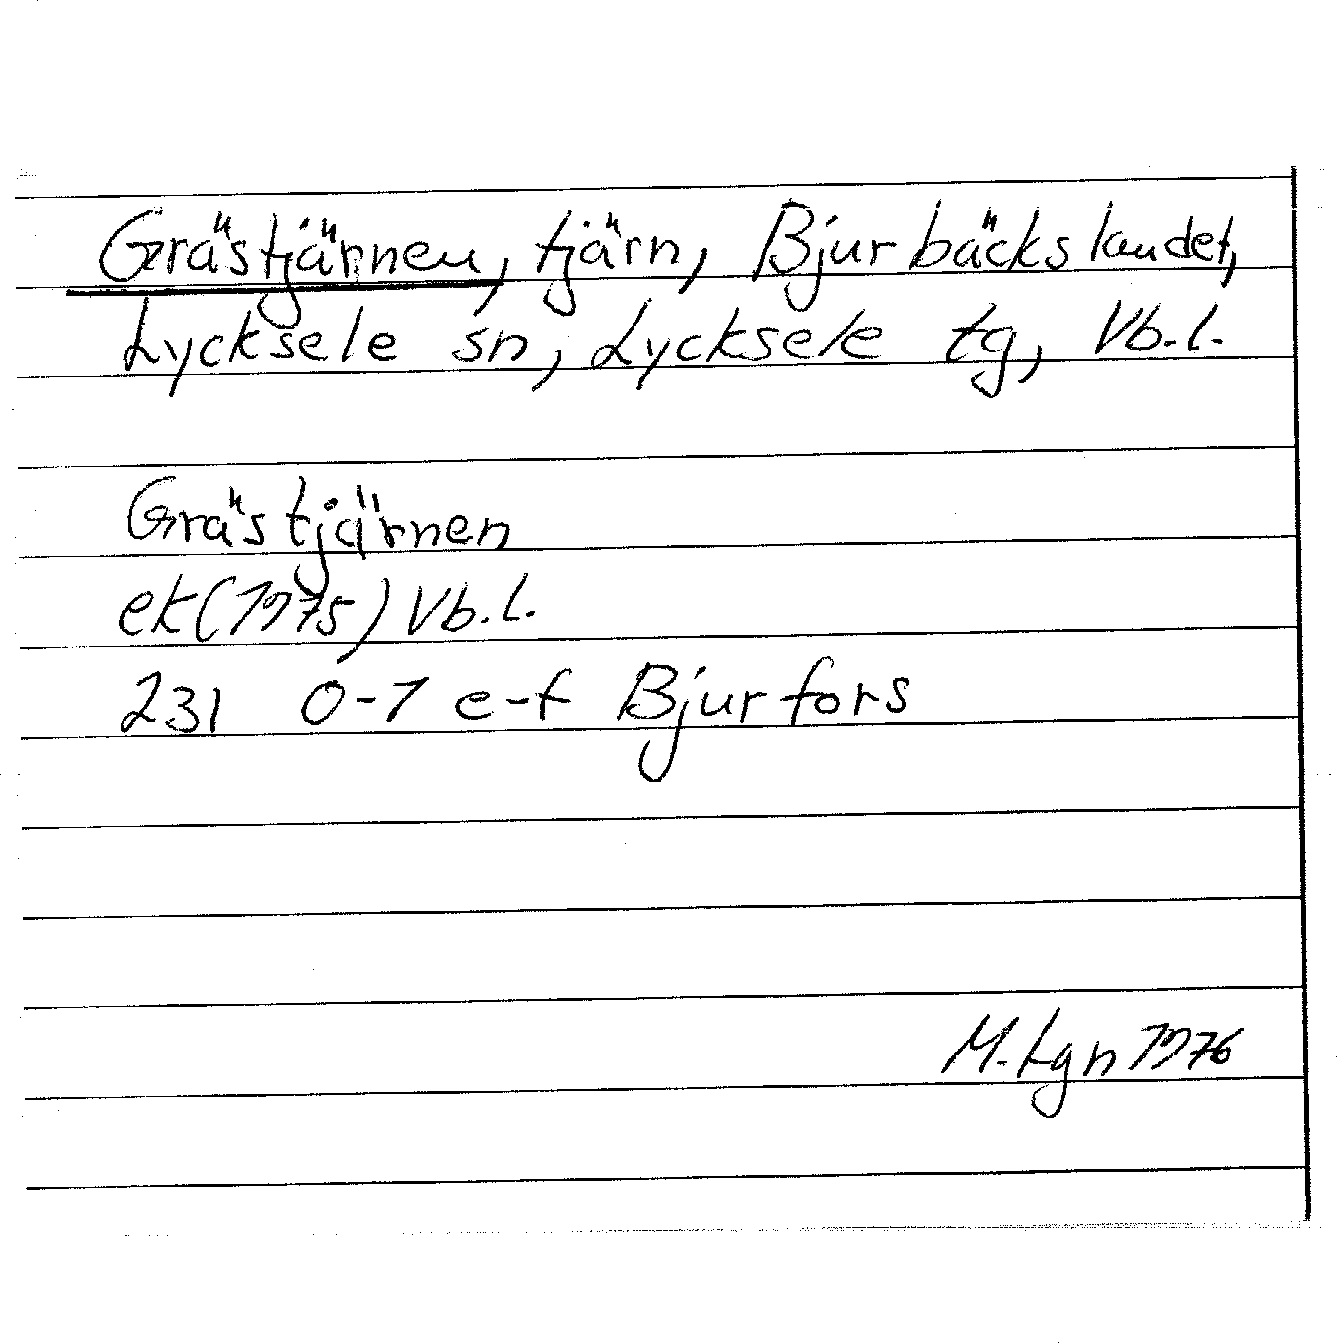 Grästjärnen, tjärn, Bjurbäckslandet,
Lycksele sn, Lycksele tg, Vb.l.
Grästjärnen
ek(1975) Vb.l.
231 0-1 e-f Bjurfors
M. Lgn 1976